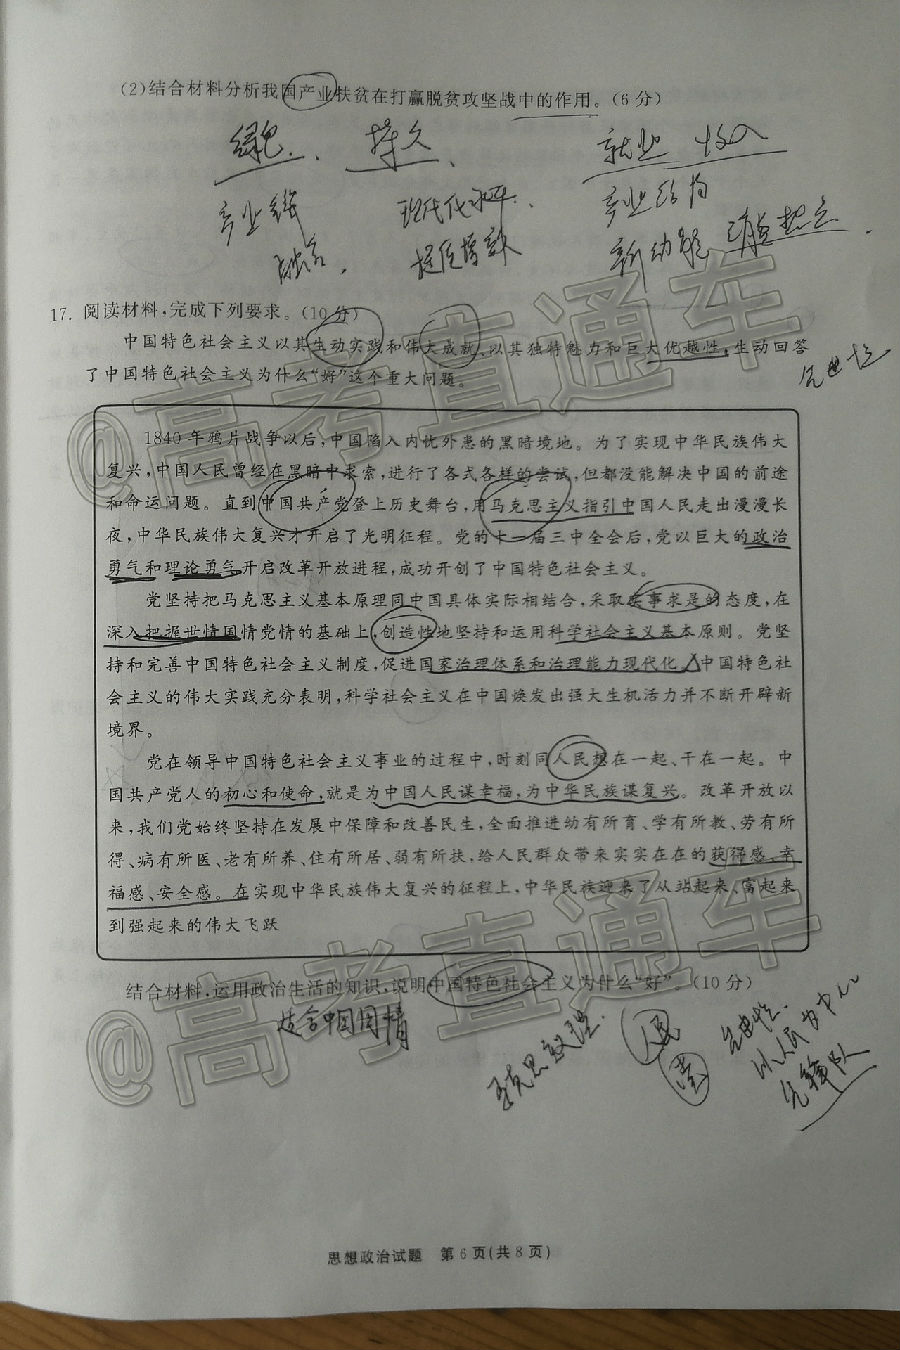 (2)结合材料分析我国产业扶贫在打赢脱贫攻坚战中的作用。(6分)
绿色、持久、就业 收入
产业 现代化水平、产业结构
融合、促进增效 新动能
17. 阅读材料,完成下列要求。(10分)
中国特色社会主义以其生动实践和伟大成就、以其独特魅力和巨大优越性,生动回答
了中国特色社会主义为什么“好”这个重大问题。
先进性
1840年鸦片战争以后,中国陷入内忧外患的黑暗境地。为了实现中华民族伟大
复兴,中国人民曾经在黑暗中求索,进行了各式各样的尝试,但都没能解决中国的前途
和命运问题。直到中国共产党登上历史舞台,用马克思主义指引中国人民走出漫漫长
夜,中华民族伟大复兴才开启了光明征程。党的十一届三中全会后,党以巨大的政治
勇气和理论勇气开启改革开放进程,成功开创了中国特色社会主义。
党坚持把马克思主义基本原理同中国具体实际相结合,采取实事求是的态度,在
深入把握世情国情党情的基础上,创造性地坚持和运用科学社会主义基本原则。党坚
持和完善中国特色社会主义制度,促进国家治理体系和治理能力现代化,中国特色社
会主义的伟大实践充分表明,科学社会主义在中国焕发出强大生机活力并不断开辟新
境界。
党在领导中国特色社会主义事业的过程中,时刻同人民想在一起、干在一起。中
国共产党人的初心和使命,就是为中国人民谋幸福,为中华民族谋复兴。改革开放以
来,我们党始终坚持在发展中保障和改善民生,全面推进幼有所育、学有所教、劳有所
得、病有所医、老有所养、住有所居、弱有所扶,给人民群众带来实实在在的获得感、幸
福感、安全感。在实现中华民族伟大复兴的征程上,中华民族迎来了从站起来、富起来
到强起来的伟大飞跃
结合材料,运用政治生活的知识,说明中国特色社会主义为什么“好”。(10分)
适合中国国情
人民
党
先进性、
以人民为中心
先锋队
@高考直通车
@高考直通车
思想政治试题 第6页(共8页)